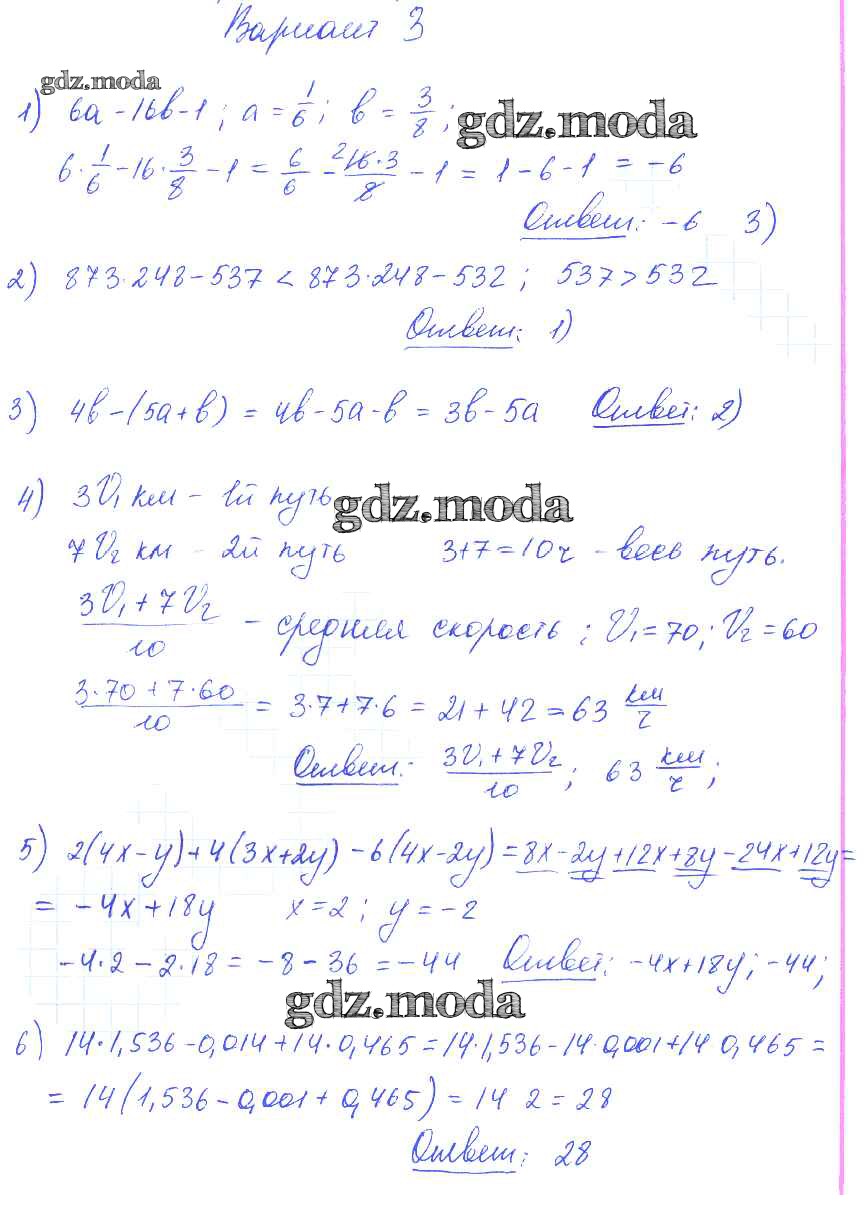 Вариант 3
gdz.moda
1) 6a - 16b - 1; a = 1/6; b = 3/8;
gdz.moda
6·1/6 - 16·3/8 - 1 = 6/6 - 2 16·3/8 - 1 = 1 - 6 - 1 = -6
Ответ: -6 3)
2) 873·248 - 537 < 873·248 - 532; 537 > 532
Ответ: 1)
3) 4b - (5a + b) = 4b - 5a - b = 3b - 5a Ответ: 2)
4) 3V₁ км - 1й путь
gdz.moda
7V₂ км - 2й путь 3+7=10ч - весь путь.
(3V₁ + 7V₂)/10 - средняя скорость; V₁ = 70; V₂ = 60
(3·70 + 7·60)/10 = 3·7 + 7·6 = 21 + 42 = 63 км/ч
Ответ: (3V₁ + 7V₂)/10; 63 км/ч;
5) 2(4x - y) + 4(3x + 2y) - 6(4x - 2y) = 8x - 2y + 12x + 8y - 24x + 12y =
= -4x + 18y x = 2; y = -2
-4·2 - 2·18 = -8 - 36 = -44 Ответ: -4x + 18y; -44;
gdz.moda
6) 14·1,536 - 0,014 + 14·0,465 = 14·1,536 - 14·0,001 + 14 0,465 =
= 14(1,536 - 0,001 + 0,465) = 14 2 = 28
Ответ: 28